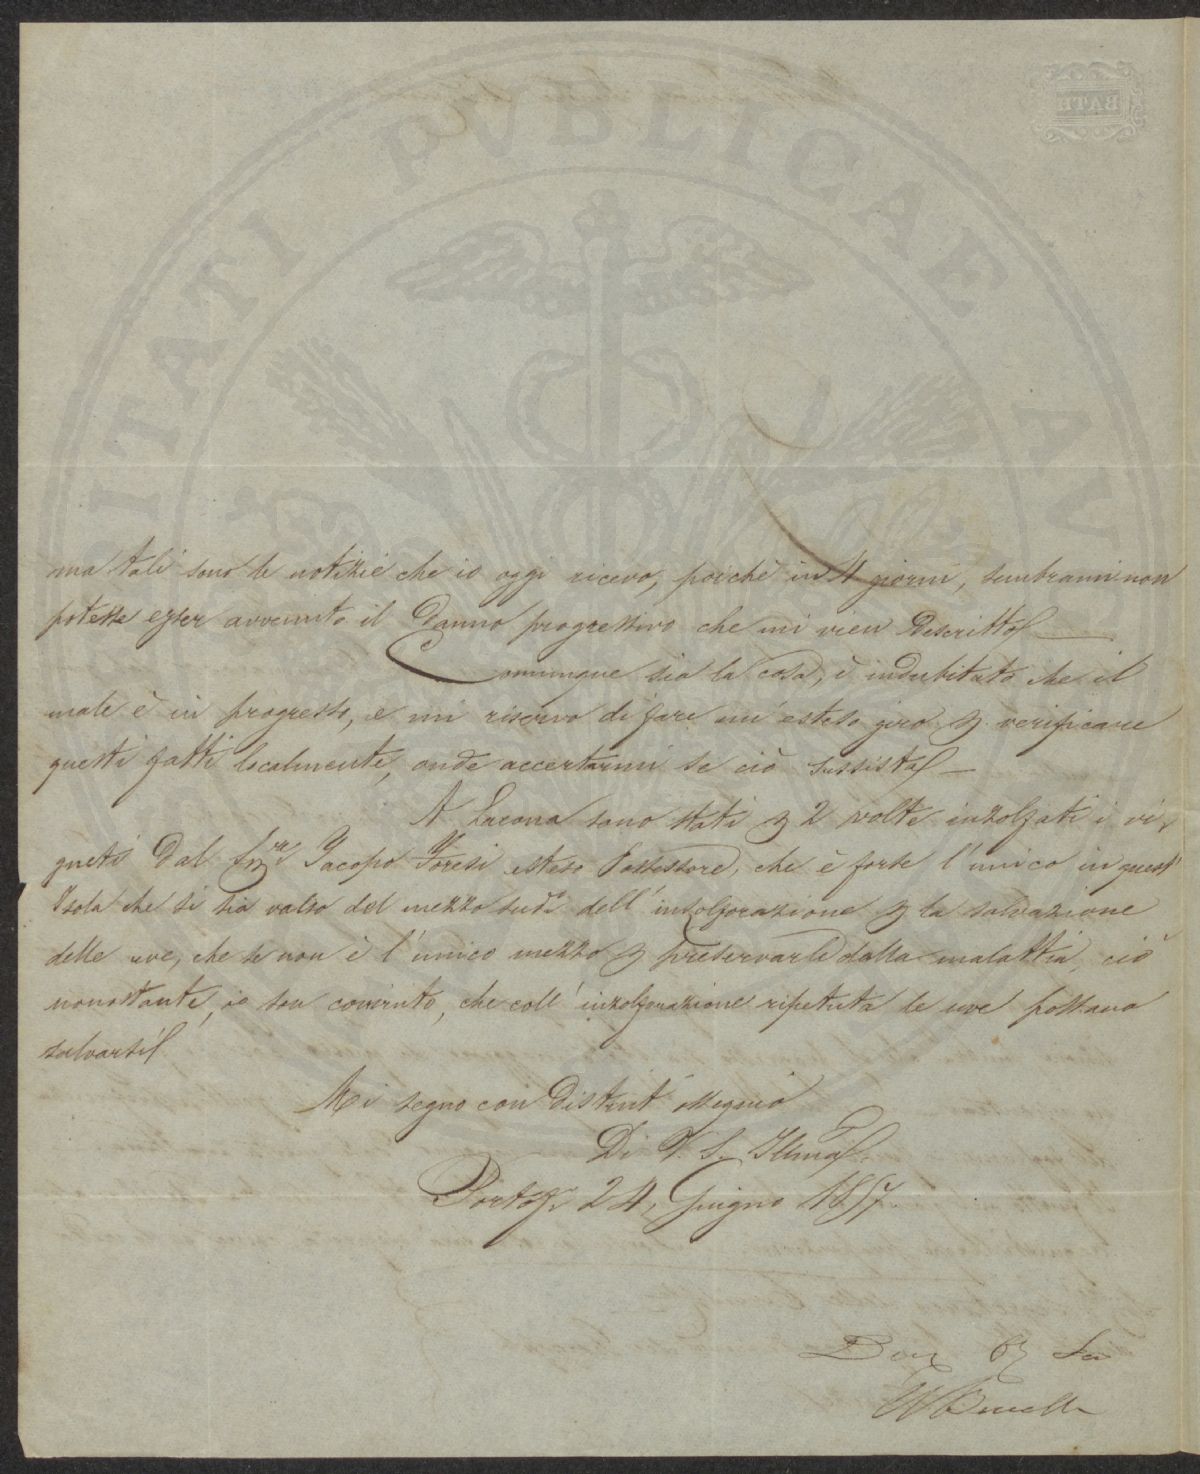 BATH
ITATI PVBLICAE AV
ma tali sono le notizie che io oggi ricevo, poichè in 4 giorni, sembrami non
potesse esser avvenuto il danno progressivo che mi vien descritto
Comunque sia la cosa, è indubitato che il
male è in progresso, e mi riservo di fare un' esteso giro p verificare
questi fatti localmente, onde accertarmi se ciò sussista
A Lacona sono stati p 2 volte inzolfati i vi-
gneti dal Jacopo Foresi esteso Possessore, che è forse l'unico in quest'
Isola che si sia valso del mezzo sud° dell'insolforazione p la salvazione
delle uve, che se non è l'unico mezzo p preservarle dalla malattia, ciò
nonostante, io son convinto, che coll' inzolforazione ripetuta le uve possano
salvarsi
Mi segno con distint' ossequio
Di V. S. Illma
Portof. 24, Giugno 1857.